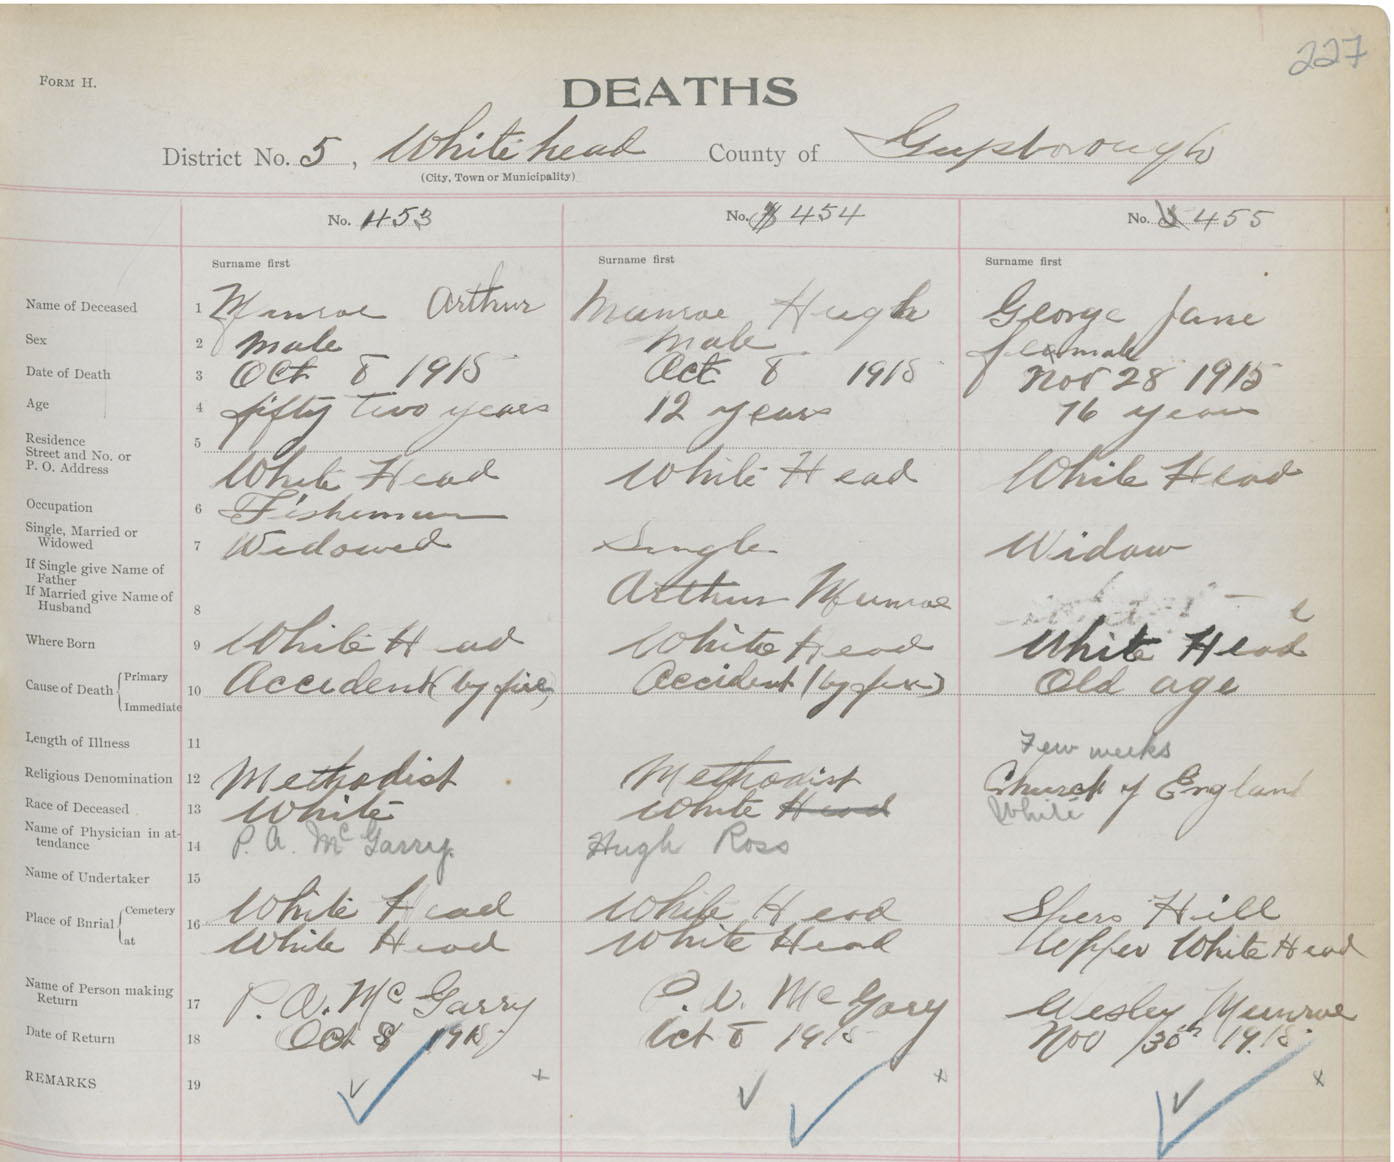 227
FORM H.
DEATHS
District No. 5, White head County of Guysborough
(City, Town or Municipality)
No. 453 No. 454 No. 455
Surname first Surname first Surname first
Name of Deceased 1 Munroe Arthur Munroe Hugh George Jane
Sex 2 male male female
Date of Death 3 Oct 8 1915 Oct 8 1915 Nov 28 1915
Age 4 fifty two years 12 years 76 years
Residence
Street and No. or
P. O. Address 5 White Head White Head White Head
Occupation 6 Fisherman
Single, Married or
Widowed 7 Widowed Single Widow
If Single give Name of
Father
If Married give Name of
Husband 8 Arthur Munroe
Where Born 9 White Head White Head White Head
Cause of Death { Primary
Immediate 10 Accident (by fire) Accident (by fire) Old age
Length of Illness 11 Few weeks
Religious Denomination 12 Methodist Methodist Church of England
Race of Deceased 13 White White Head White
Name of Physician in at-
tendance 14 P. A. McGarry. Hugh Ross
Name of Undertaker 15
Place of Burial { Cemetery
at 16 White Head White Head Hill
White Head White Head Upper White Head
Name of Person making
Return 17 P. A. McGarry P. A. McGary Wesley Munroe
Date of Return 18 Oct 8 1915 Oct 8 1915 Nov 30th 1915
REMARKS 19